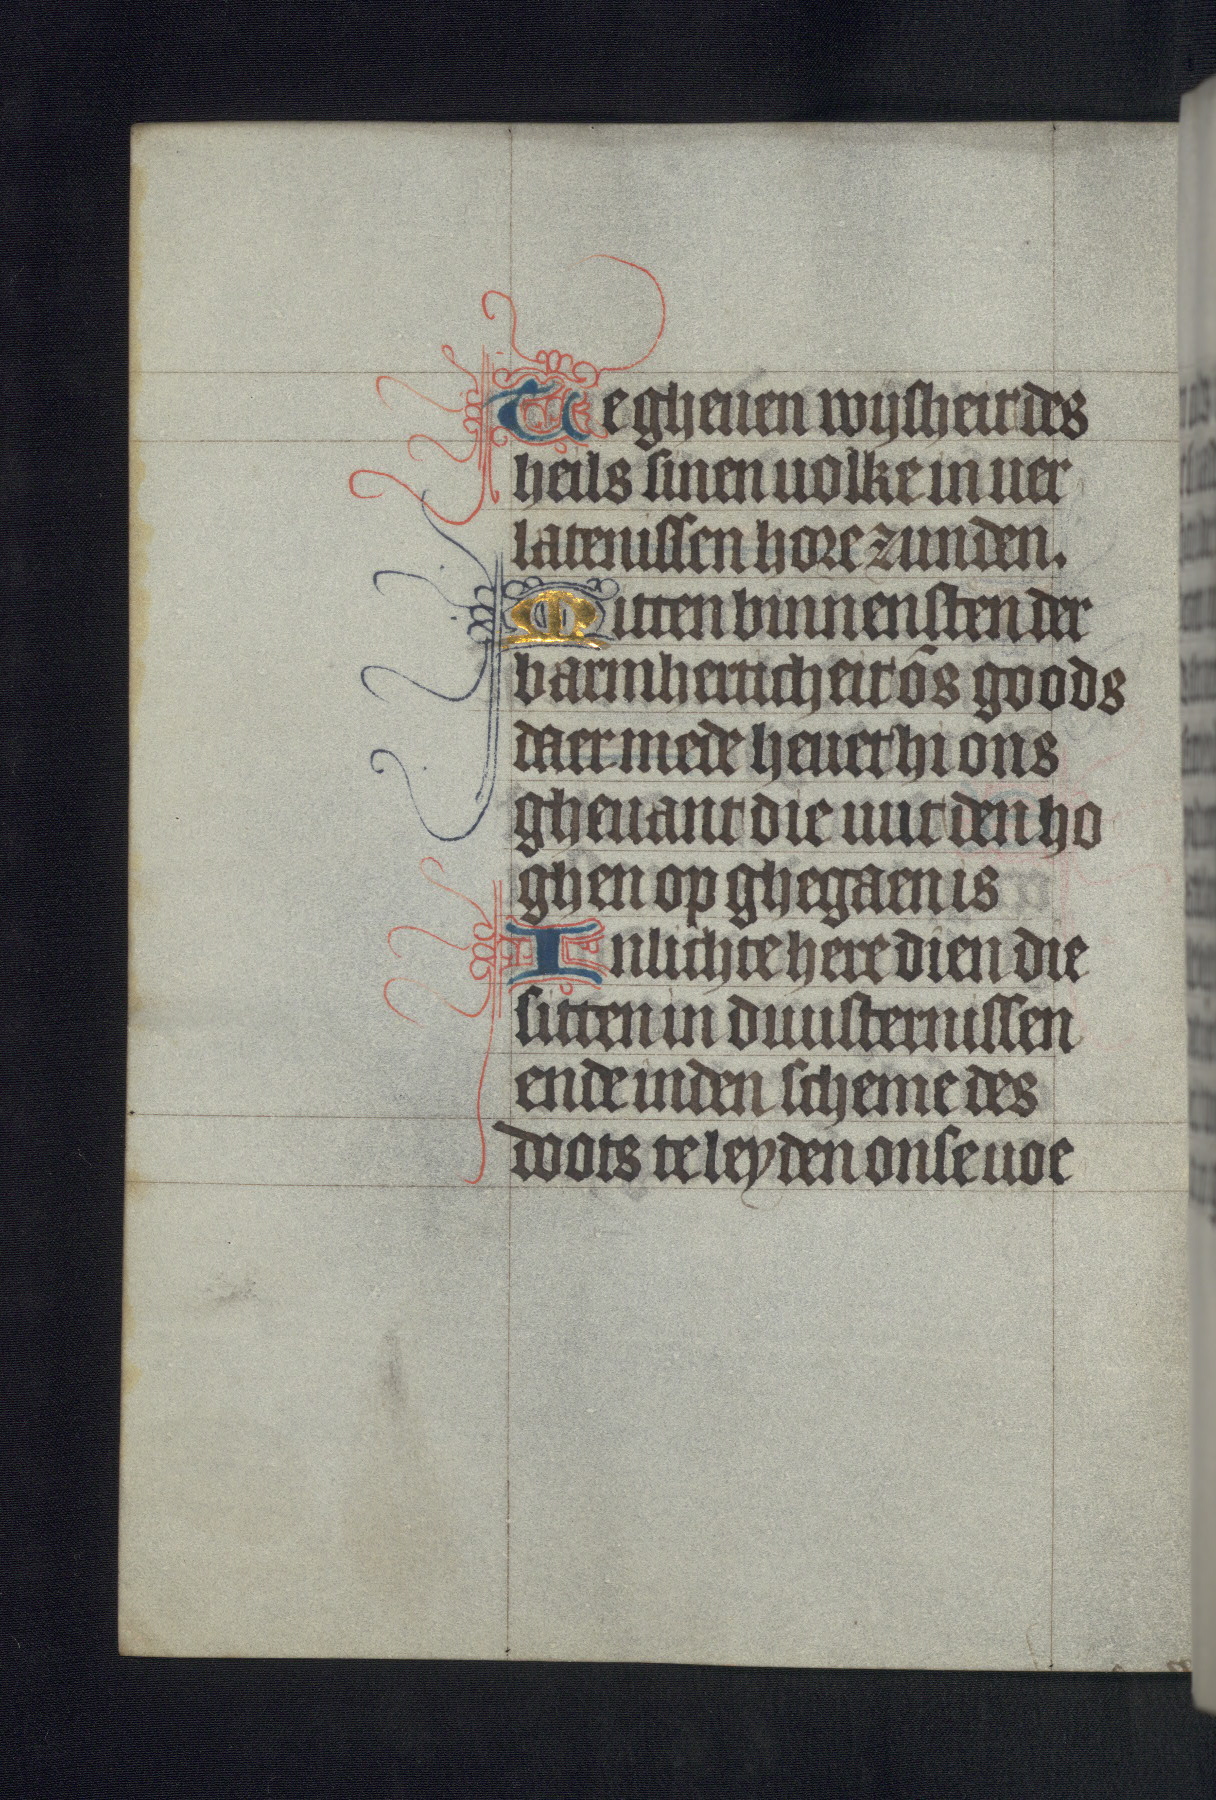 Te gheuen wijsheit des
heils sinen uolke in uer
latenissen hore zunden.
Mitten binnensten der
barmherticheit ōs goods
daer mede heuet hi ons
gheuant die uut den ho
ghen op ghegaen is
Inlichte here dien die
sitten in duusternissen
ende inden scheme des
doots te leyden onse uoe